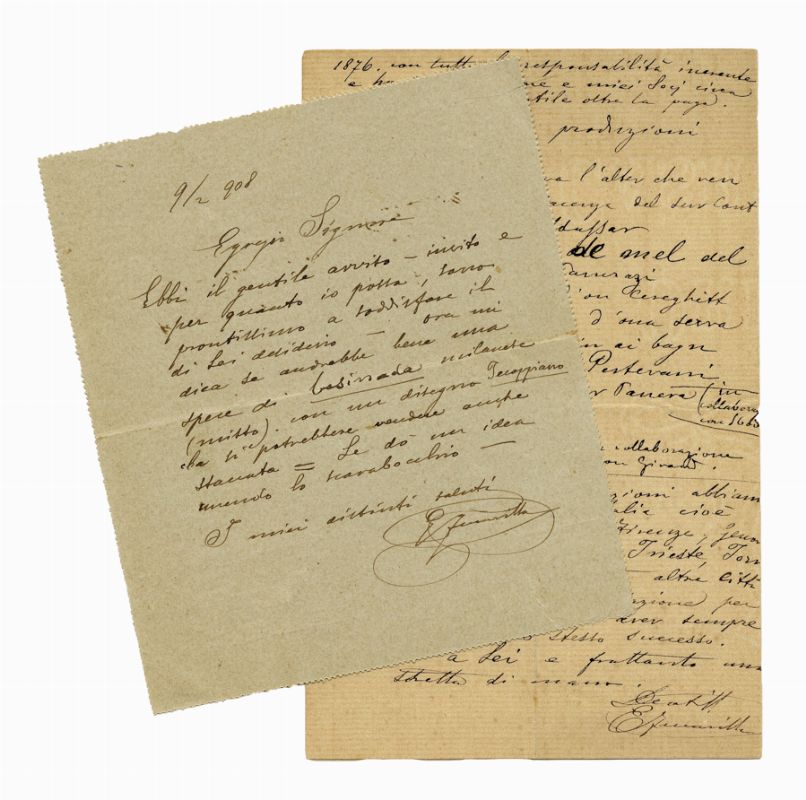 9/2 908
Egregio Signore
Ebbi il gentile avviso - invito e
per quanto io possa, sarò
prontissimo a soddisfare il
di Lei desiderio - ora mi
dica se andrebbe bene una
specie di bosinada milanese
(misto). con un disegno
che si potrebbe vendere anche
staccata = Le dò un idea
unendo lo scarabocchio -
I miei distinti saluti
1876. con tutta la responsabilità inerente
e miei Socj circa
utile oltre la paga.
produzioni
l'alter che ven
del sur Cont
de mel del
d'ona serva
in ai bagn
Pestevani
Tanera (in
collaboraz
collaborazione
con Giraud.
abbiam
cioè
Firenze, Genov
Trieste, Torr
- altre Citt
per
aver sempre
lo stesso successo.
a Lei e frattanto una
stretta di mano.